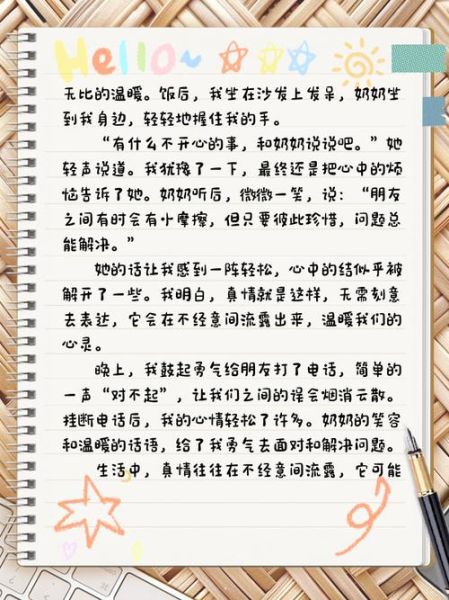 Hello~
无比的温暖。饭后，我坐在沙发上发呆，奶奶坐
到我身边，轻轻地握住我的手。
“有什么不开心的事，和奶奶说说吧。”她
轻声说道。我犹豫了一下，最终还是把心中的烦
恼告诉了她。奶奶听后，微微一笑，说：“朋友
之间有时会有小摩擦，但只要彼此珍惜，问题总
能解决。”
她的话让我感到一阵轻松，心中的结似乎被
解开了一些。我明白，真情就是这样，无需刻意
去表达，它会在不经意间流露出来，温暖我们的
心灵。
晚上，我鼓起勇气给朋友打了电话，简单的
一声“对不起”，让我们之间的误会烟消云散。
挂断电话后，我的心情轻松了许多。奶奶的笑容
和温暖的话语，给了我勇气去面对和解决问题。
生活中，真情往往在不经意间流露，它可能